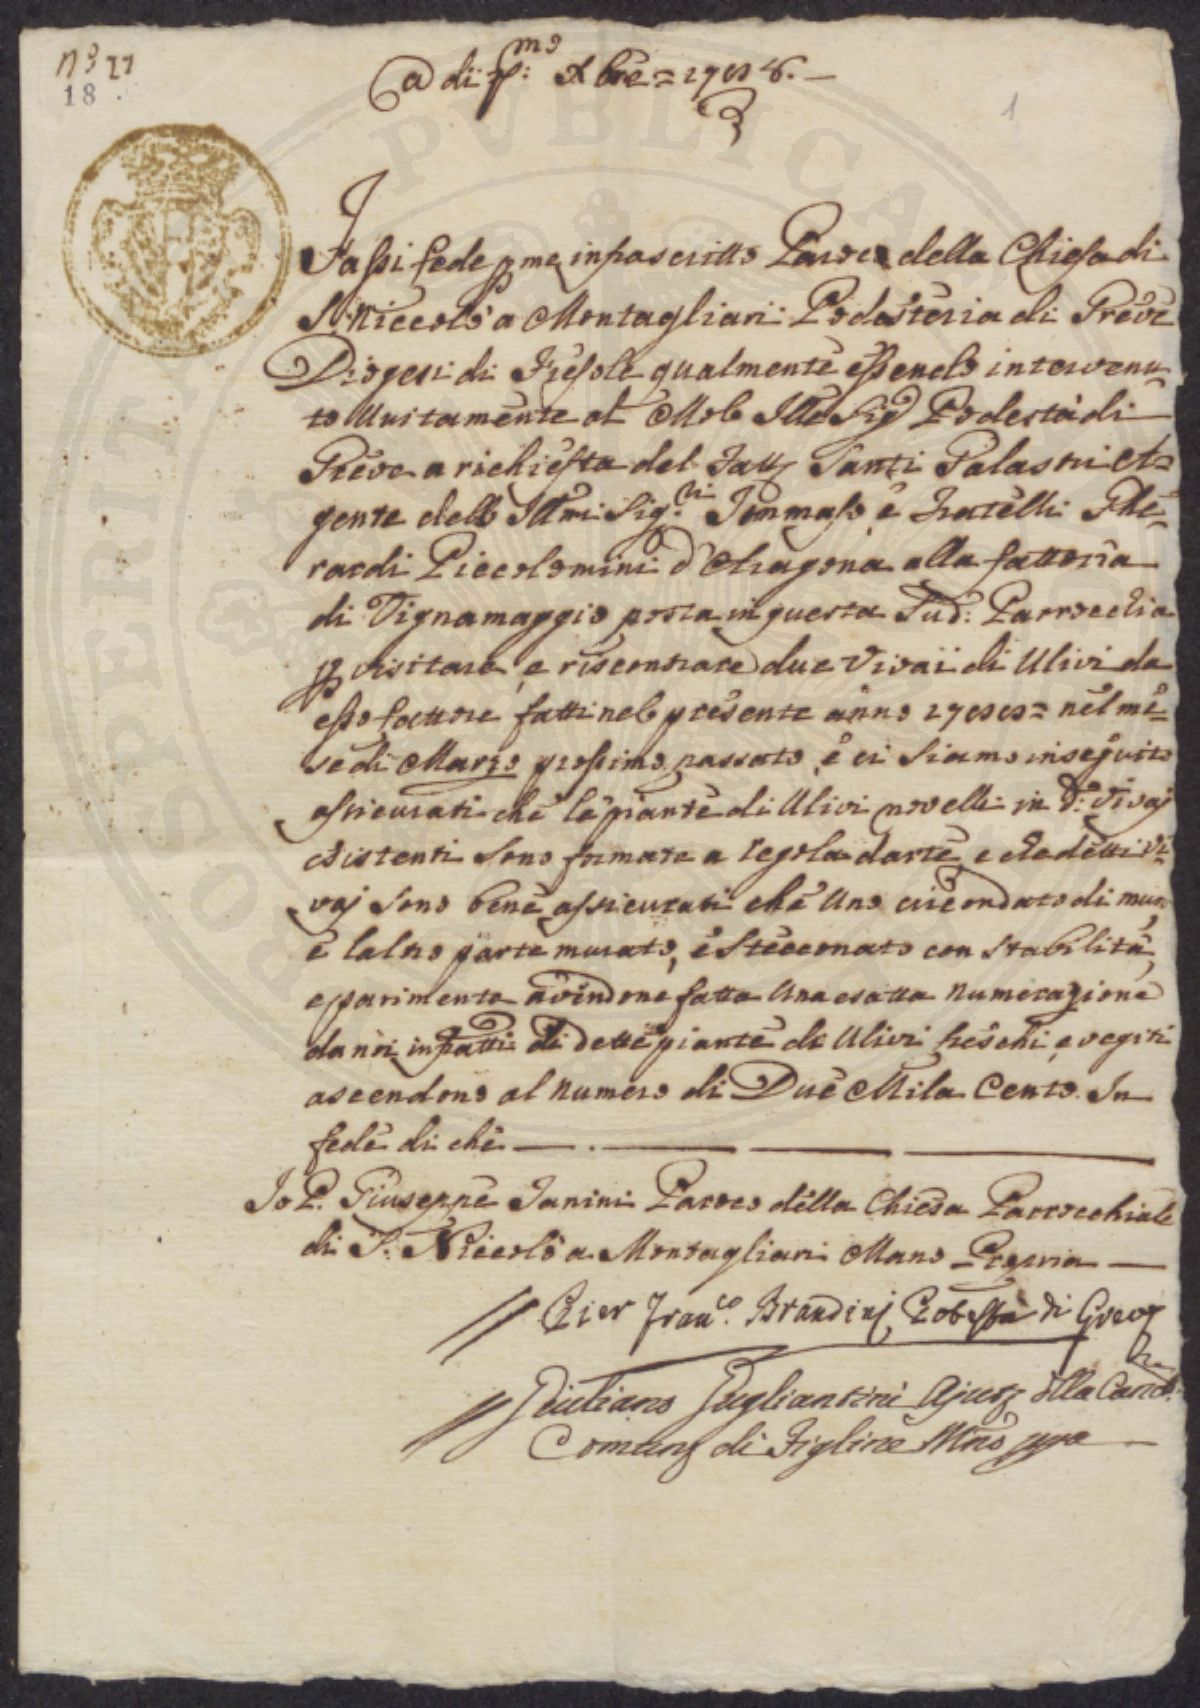 n.º 11
18
1
A di p:mo Xbre =
Fassi fede p me infrascritto Paroco della Chiesa di
S. Niccolò a Montagliari Podesteria di Greve
Diogesi di Fiesole qualmente essendo intervenu
to Unitamente al Nob Illo Sig Podestà di
Greve a richiesta del Fatt Santi Palastri A=
gente delli Illmi Sig.ri Tommaso e Fratelli Ghe=
rardi Piccolomini d'Aragona alla fattoria
di Vignamaggio posta in questa Sud: Parrocchia
p visitare, e riscontrare due Vivai di Ulivi da
esso fattore fatti nel presente anno = nel me=
se di Marzo prossimo passato, e ci siamo in seguito
assicurati che le piante di Ulivi novelli in d: Vivaj
esistenti sono formate a regola darte, e che detti Vi=
vaj sono bene assicurati che Uno circondato di muro,
e laltro parte murato, e stecconato con stabilità,
e parimente avendone fatta Una esatta numerazione
da noi infratti di dette piante di Ulivi freschi, e vegeti
ascendono al numero di Due Mila Cento. In
fede di che
Io P. Giuseppe Tanini Paroco della Chiesa Parrocchiale
di S. Niccolò a Montagliari Mano Propria
Pier Fran.co Brandini Potestà di Greve
Giuliano Pugliantini Ajut della Canc.
Comun di Figline Mno ppa
PROSPERITAS PVBLICA